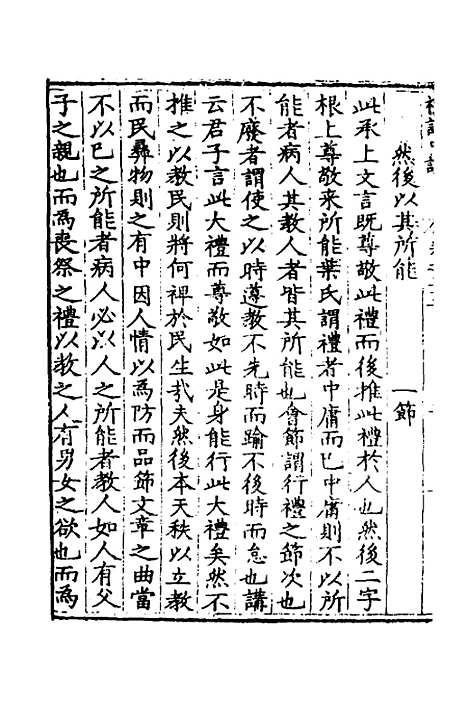 然後以其所能　一節
此承上文言既尊敬此禮而後推此禮於人也然後二字
根上尊敬來所能葉氏謂禮者中庸而已中庸則不以所
能者病人其教人者皆其所能也會節謂行禮之節次也
不廢者謂使之以時遵教不先時而踰不後時而怠也講
云君子言此大禮而尊敬如此是身能行此大禮矣然不
推之以教民則將何裨於民生㢤夫然後本天秩以立教
而民彞物則之有中因人情以為防而品節文章之曲當
不以已之所能者病人必以人之所能者教人如人有父
子之親也而為喪祭之禮以教之人有男女之欲也而為